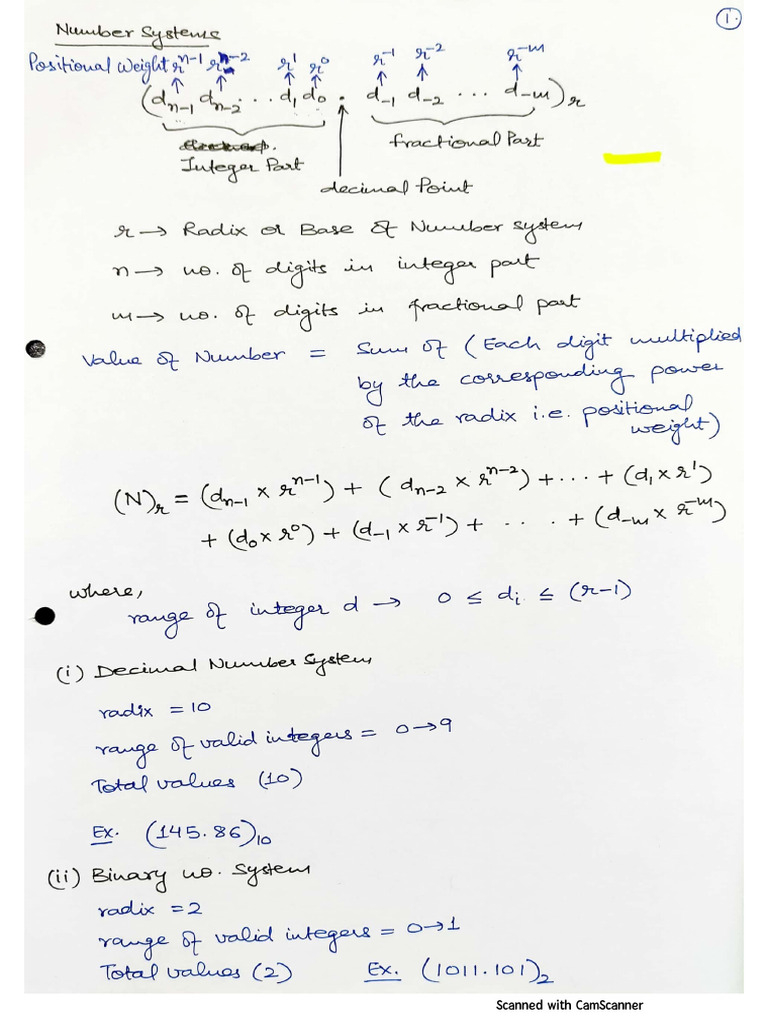 1.
Number Systems
Positional Weight rⁿ⁻¹ rⁿ⁻² r¹ r⁰ r⁻¹ r⁻² r⁻ᵐ
(dₙ₋₁ dₙ₋₂ ... d₁ d₀ . d₋₁ d₋₂ ... d₋ₘ)ᵣ
Integer Part
fractional Part
decimal Point
r → Radix or Base of Number system
n → no. of digits in integer part
m → no. of digits in fractional part
Value of Number = Sum of (Each digit multiplied
by the corresponding power
of the radix i.e. positional
weight)
(N)ᵣ = (dₙ₋₁ × rⁿ⁻¹) + (dₙ₋₂ × rⁿ⁻²) + ... + (d₁ × r¹)
+ (d₀ × r⁰) + (d₋₁ × r⁻¹) + .... + (d₋ₘ × r⁻ᵐ)
where,
range of integer d → 0 ≤ dᵢ ≤ (r-1)
(i) Decimal Number System
radix = 10
range of valid integers = 0→9
Total values (10)
Ex. (145.86)₁₀
(ii) Binary no. System
radix = 2
range of valid integers = 0→1
Total values (2) Ex. (1011.101)₂
Scanned with CamScanner